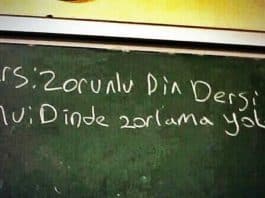 rs: Zorunlu Din Dersi
nu: Dinde zorlama yok